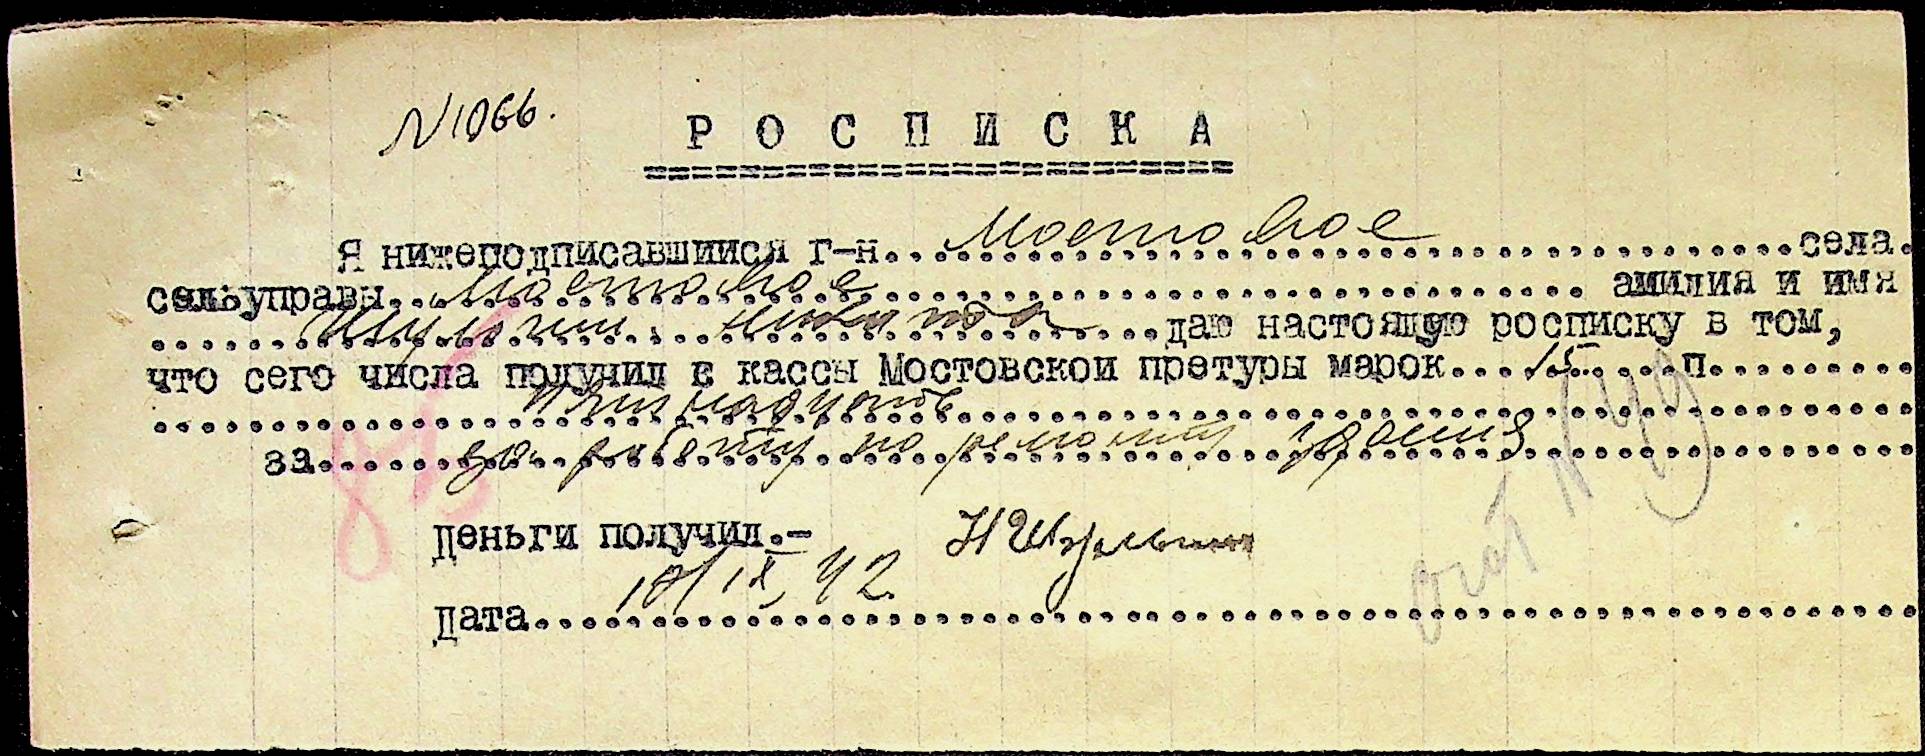 N 1066.
РОСПИСКА
Я нижеподписавшийся г-н.. Мостовое ..села.
сельуправы.. Мостовое .. амилия и имя
Шульгин никита ...даю настоящую росписку в том,
что сего числа получил с кассы Мостовской претуры марок.... 15 ...п.........
Пятнадцать
за.... за работу по ремонту здания
85
Деньги получил.- Н Шульгин
Дата.... 10/IX, 42.